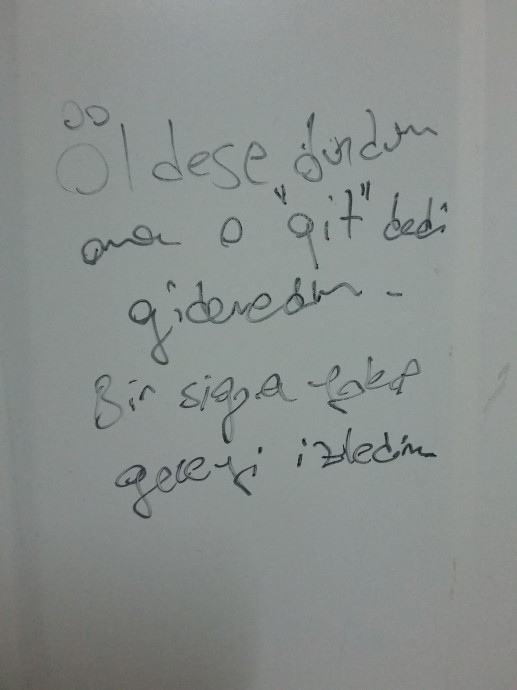 Öl dese ölürdüm
ama o "git" dedi
gidemedim -
Bir sigara yakıp
geceyi izledim